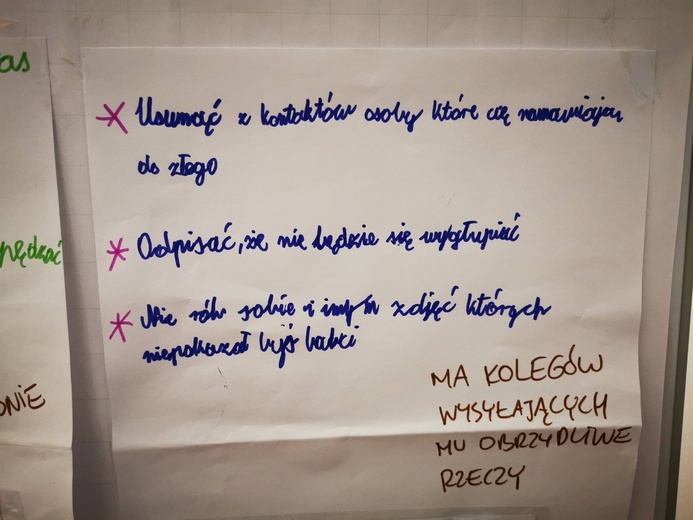 as
pędzać
ONIE
* Usunąć z kontaktów osoby które cię namawiają
do złego
* Odpisać, że nie będzie się wygłupiać
* Nie rób sobie i innym zdjęć których
niepokazał byś babci
MA KOLEGÓW
WYSYŁAJĄCYCH
MU OBRZYDLIWE
RZECZY